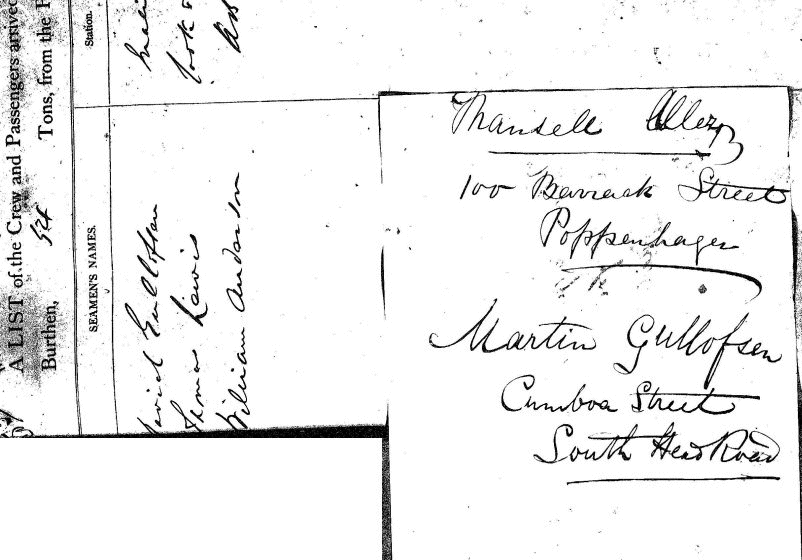 A LIST of the Crew and Passengers arrived
Burthen, 524 Tons, from the
SEAMEN'S NAMES.
Station.
Gullofsen
Thomas Lewis
William Anderson
Cook
AB
Mansell Allen
100 Barrack Street
Poppenhagen
Martin Gullofsen
Cumboa Street
South Head Road